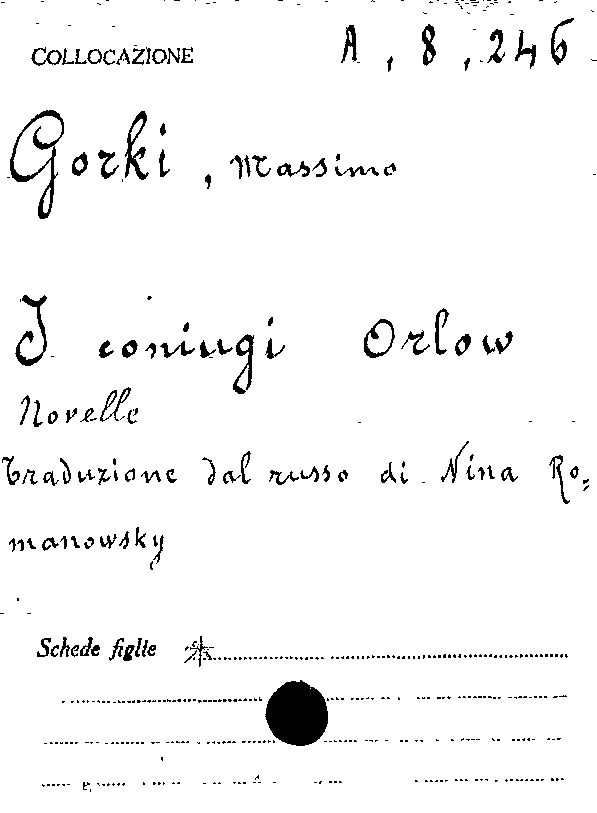 COLLOCAZIONE A, 8, 246
Gorki, Massimo
I coniugi Orlow
Novelle
Traduzione dal russo di Nina Ro=
manowsky
Schede figlie